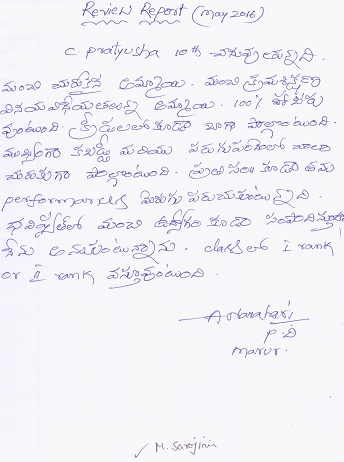 Review Report (May 2016)
C. Pratyusha 10th చదువుతున్నది.
మంచి చురుకైన అమ్మాయి. మంచి క్రమశిక్షణ
వినయ విధేయతలున్న అమ్మాయి. 100% హాజరు
వుంటుంది. క్రీడలలో కూడా బాగా పాల్గొంటుంది.
ముఖ్యంగా కబడ్డీ మరియు పరుగుపందెంలో చాలా
చురుకుగా పాల్గొంటుంది. ప్రతి సం॥ కూడా తమ
performance మెరుగు పరుచుకుంటున్నది.
భవిష్యత్ లో మంచి ఉద్యోగం కూడా సంపాదిస్తుందని
నేను అనుకుంటున్నాను. class లో I rank
or II rank వస్తూవుంటుంది.
A Harahari
P.D
Marur.
M. Sarojini